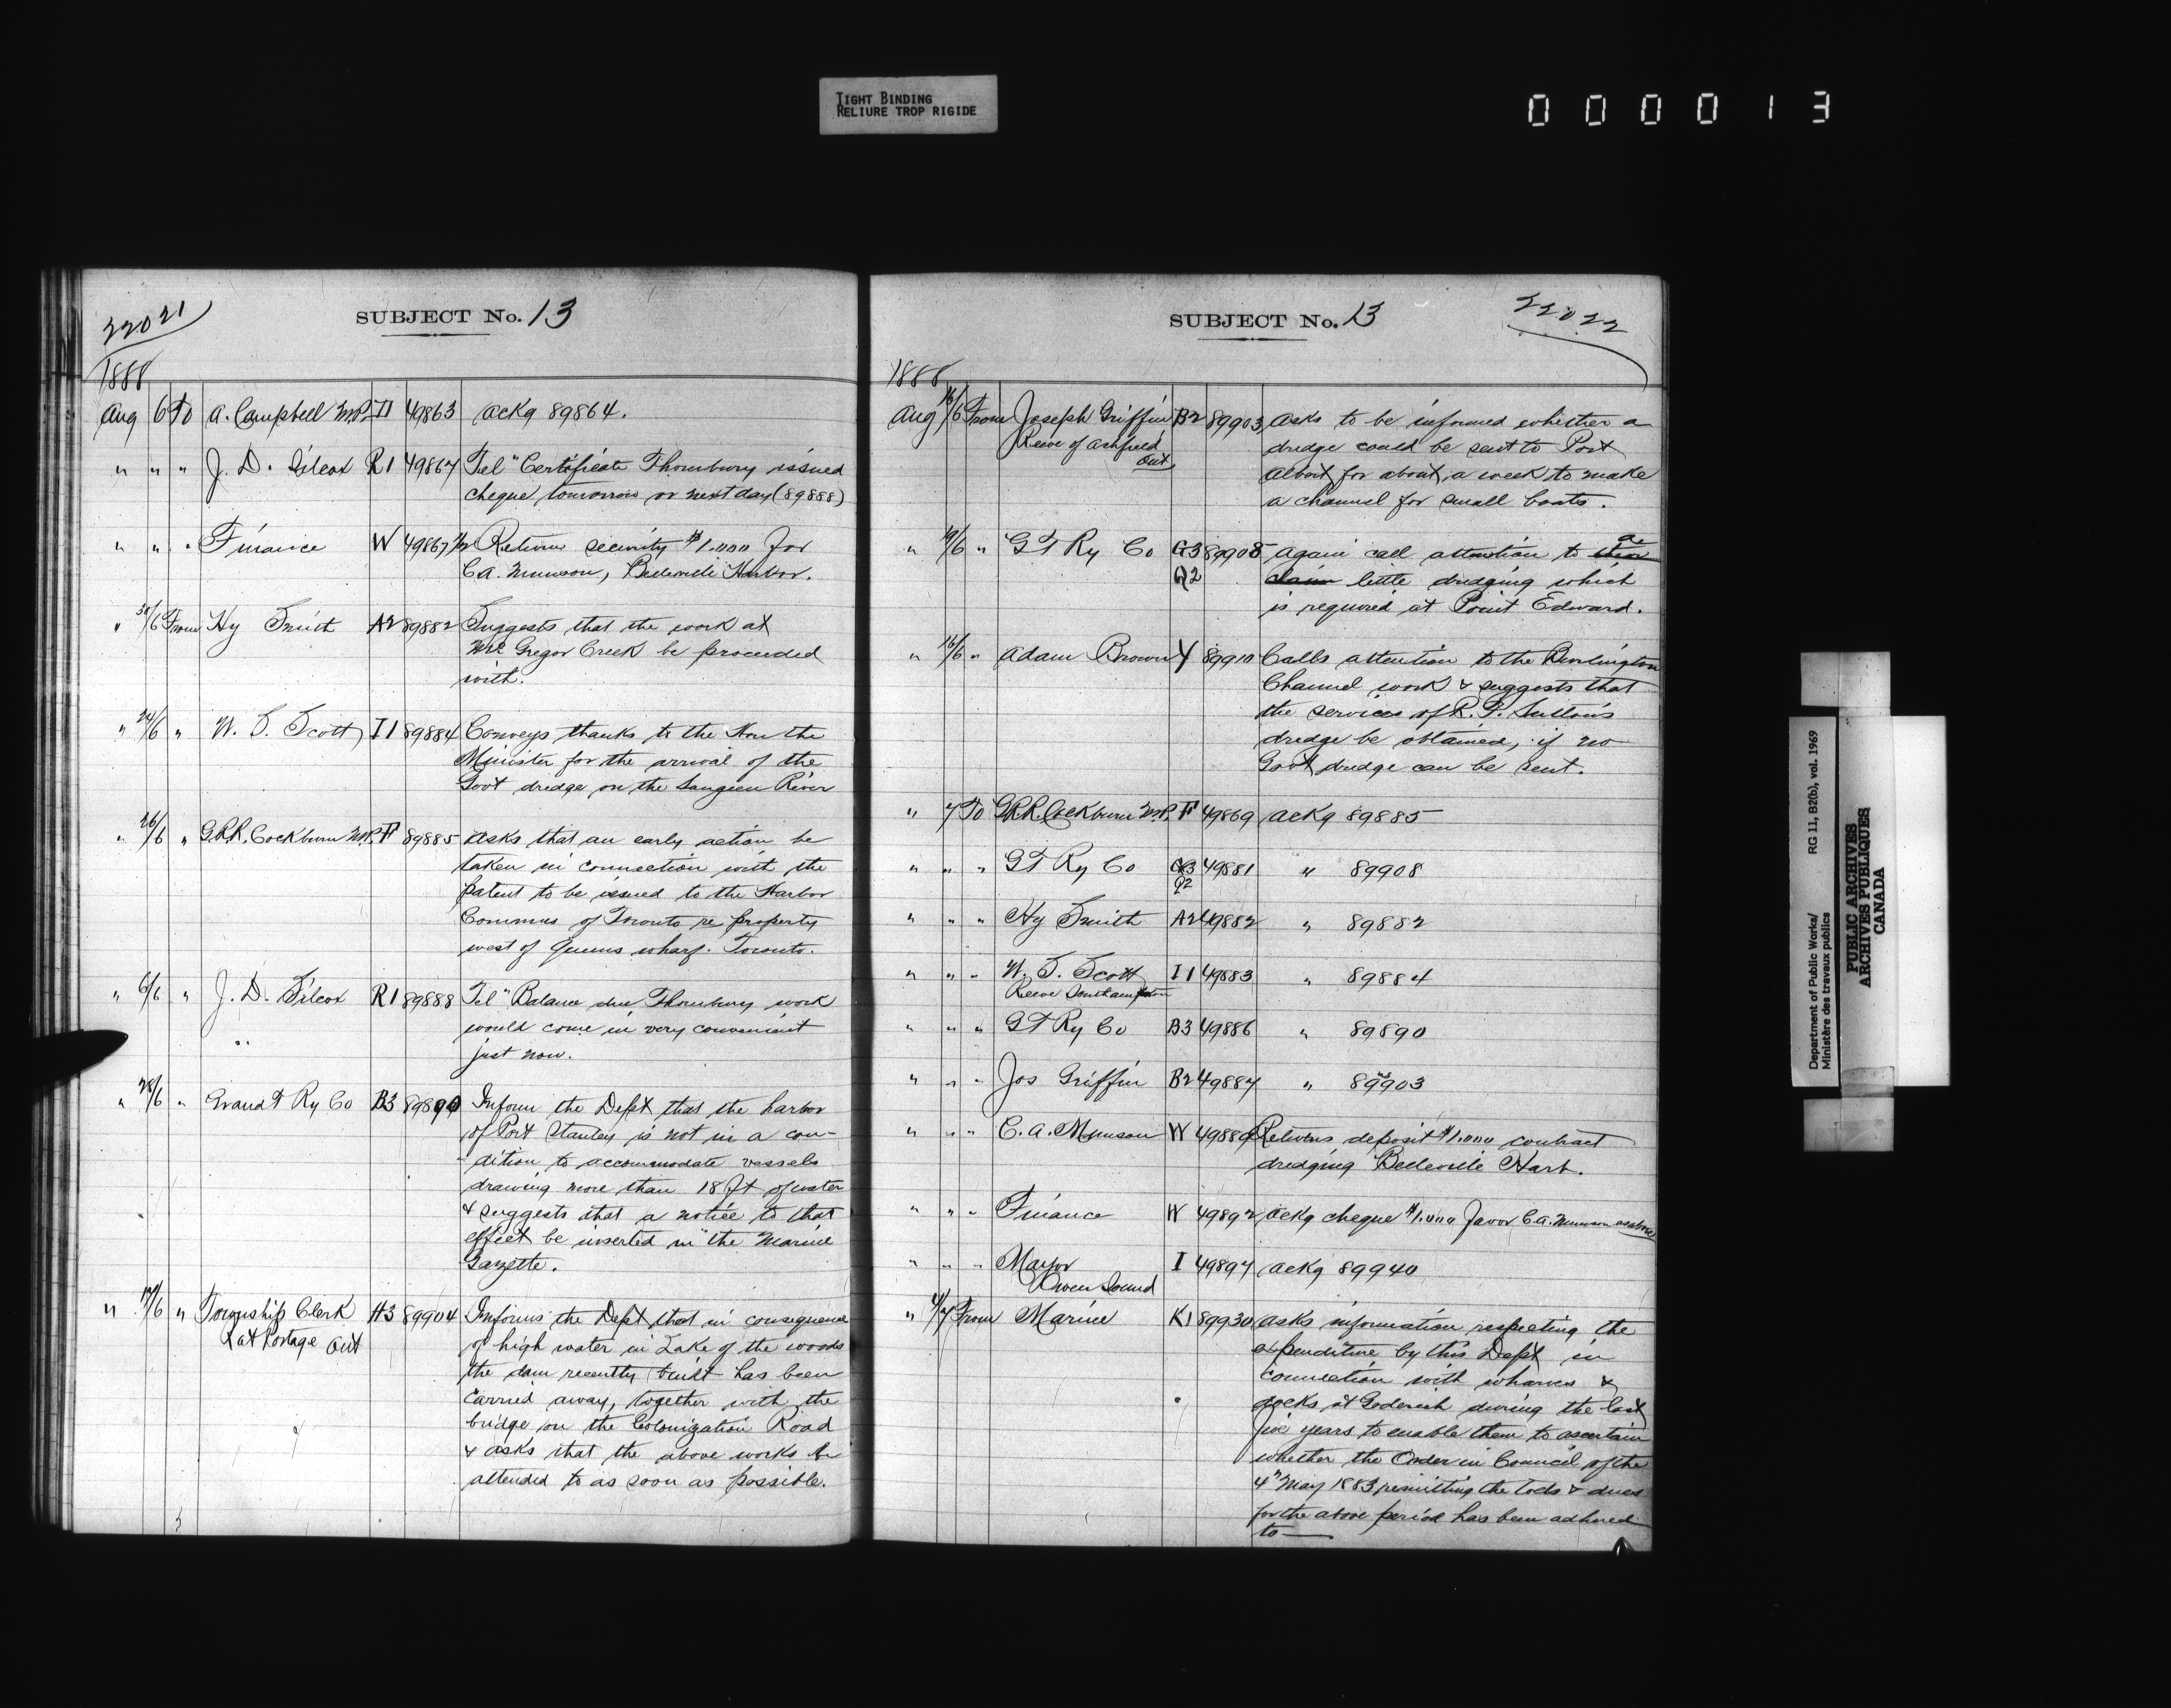 TIGHT BINDING
RELIURE TROP RIGIDE
000013
22021
SUBJECT No. 13
1888
Aug 6 To A. Campbell M.P. I1 49863 Ackg 89864.
" " " J. D. Silcox R1 49864 Tel "Certificate Thornbury issued
cheque tomorrow or next day (89888)
" " " Finance W 49867 1/2 Return security $1.000 for
C.A. Munson, Belleville Harbor.
" 30/6 From Hy Smith A2 89882 Suggests that the work at
McGregor Creek be proceeded
with.
" 24/6 " W. S. Scott I1 89884 Conveys thanks to the Hon the
Minister for the arrival of the
Govt dredge on the Saugeen River
" 26/6 " G.R.R. Cockburn M.P. F 89885 Asks that an early action be
taken in connection with the
patent to be issued to the Harbor
Commrs of Toronto re property
west of Queens wharf. Toronto.
" 6/6 " J. D. Silcox R1 89888 Tel "Balance due Thornbury work
would come in very convenient
just now.
" 28/6 " Grand T Ry Co B3 89890 Inform the Dept that the harbor
of Port Stanley is not in a con-
dition to accommodate vessels
drawing more than 18 ft of water
& suggests that a notice to that
effect be inserted in "the Marine
Gazette.
" 17/6 " Township Clerk H3 89904 Informs the Dept that in consequence
Rat Portage Ont
of high water in Lake of the woods
the dam recently built has been
carried away, together with the
bridge on the Colonization Road
& asks that the above works be
attended to as soon as possible.
SUBJECT No. 13
22022
1888
Aug 16/6 From Joseph Griffin B2 89903 Asks to be informed whether a
Reeve of Ashfield
Ont.
dredge could be sent to Port
Albert for about a week to make
a channel for small boats.
" 19/6 " G T Ry Co G3 89908 again call attention to their the
Q2
claim little dredging which
is required at Point Edward.
" 16/6 " Adam Brown Y 89910 Calls attention to the Burlington
Channel work & suggests that
the services of R. P. Sutton's
dredge be obtained, if no
Govt dredge can be sent.
" 7 To G.R.R. Cockburn M.P. F 49869 Ackg 89885
" " " G T Ry Co G3 49881 " 89908
Q2
" " " Hy Smith A2 49882 " 89882
" " " W. S. Scott I1 49883 " 89884
Reeve Southampton
" " " G T Ry Co B3 49886 " 89890
" " " Jos Griffin B2 49887 " 89903
" " " C. A. Munson W 49889 Returns deposit $1.000 contract
dredging Belleville Harb.
" " " Finance W 49892 Ackg cheque $1.000 favor C.A. Munson as above
" " " Mayor I 49897 Ackg 89940
Owen Sound
" 4/7 From Marine K1 89930 Asks information respecting the
expenditure by this Dept in
connection with wharves &
docks at Goderich during the last
five years to enable them to ascertain
whether the Order in Council of the
4th May 1883 remitting the tolls & dues
for the above period has been adhered
to —
Department of Public Works/
Ministère des travaux publics
RG 11, B2(b), vol. 1969
PUBLIC ARCHIVES
ARCHIVES PUBLIQUES
CANADA